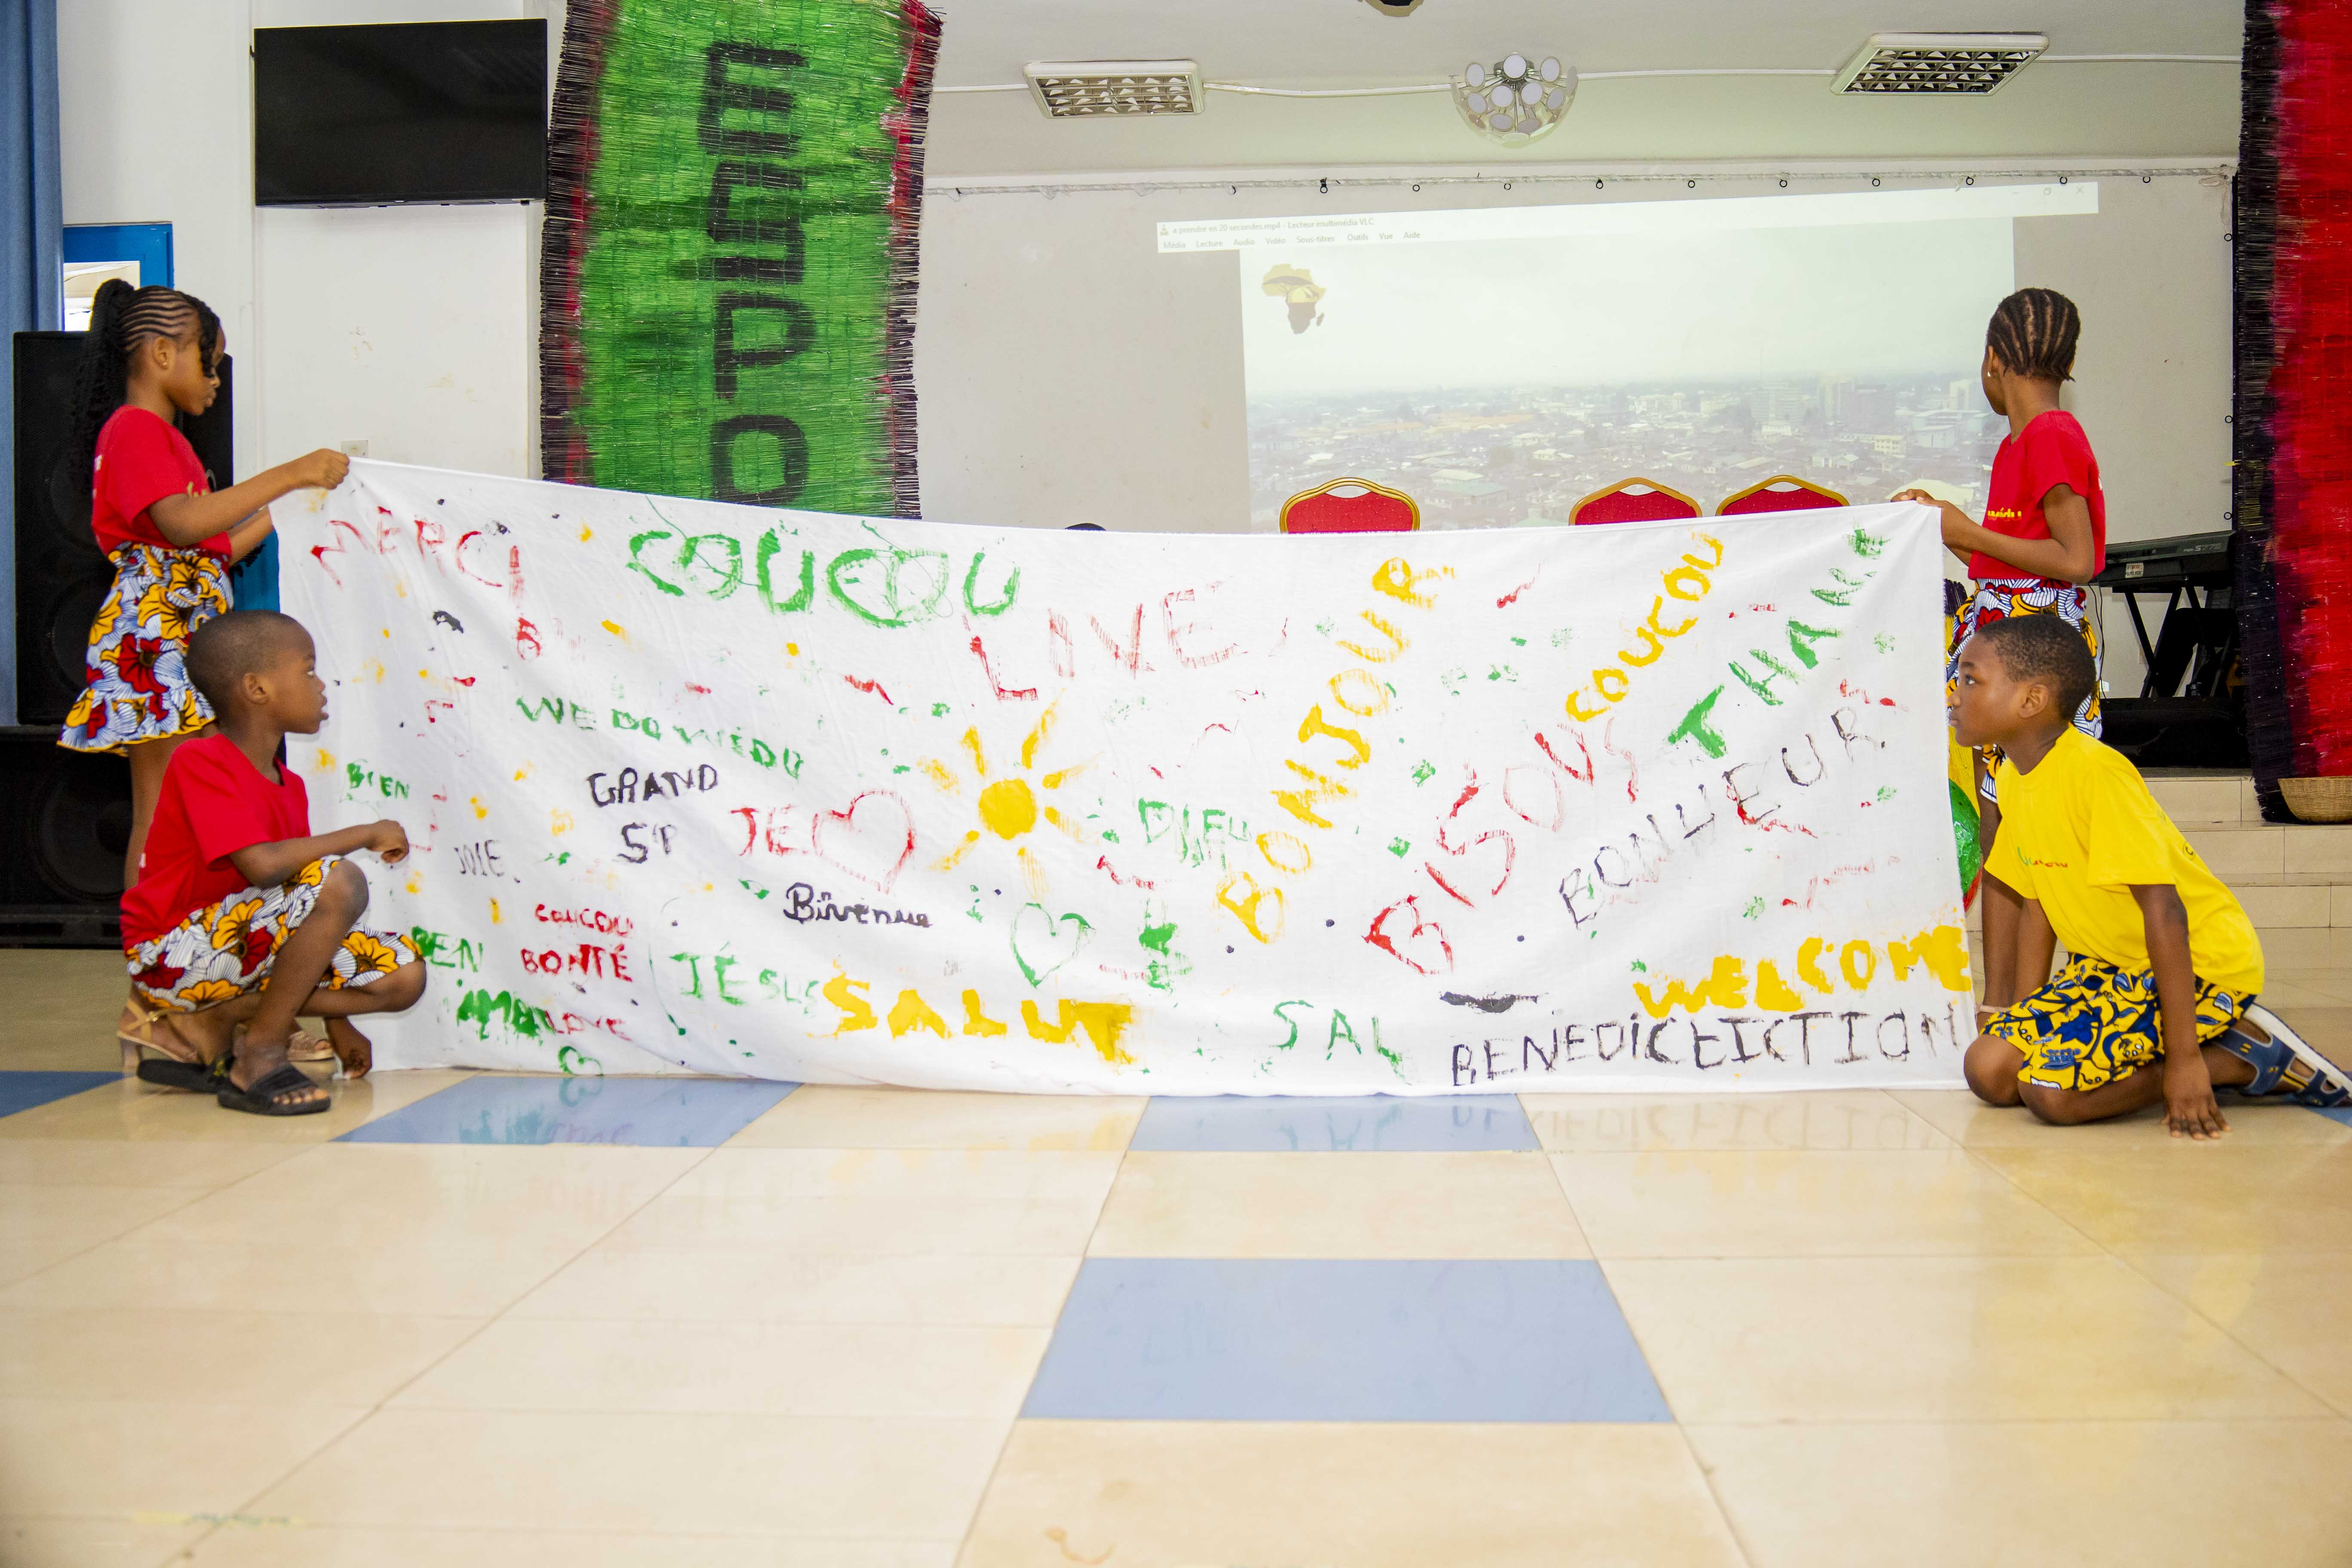 a prendre en 20 secondes.mp4 - Lecteur multimédia VLC
Média Lecture Audio Vidéo Sous-titres Outils Vue Aide
MERCI
COUCOU
LIVE
BONJOUR
COUCOU
THANK
WE DO WÉDU
BISOUS
BONHEUR
BIEN
GRAND
JE
DIEU
JOIE
Bienvenue
COUCOU
BONTÉ
BEN
JÉSUS
SALUT
SAL
WELCOME
BENEDICTICTION